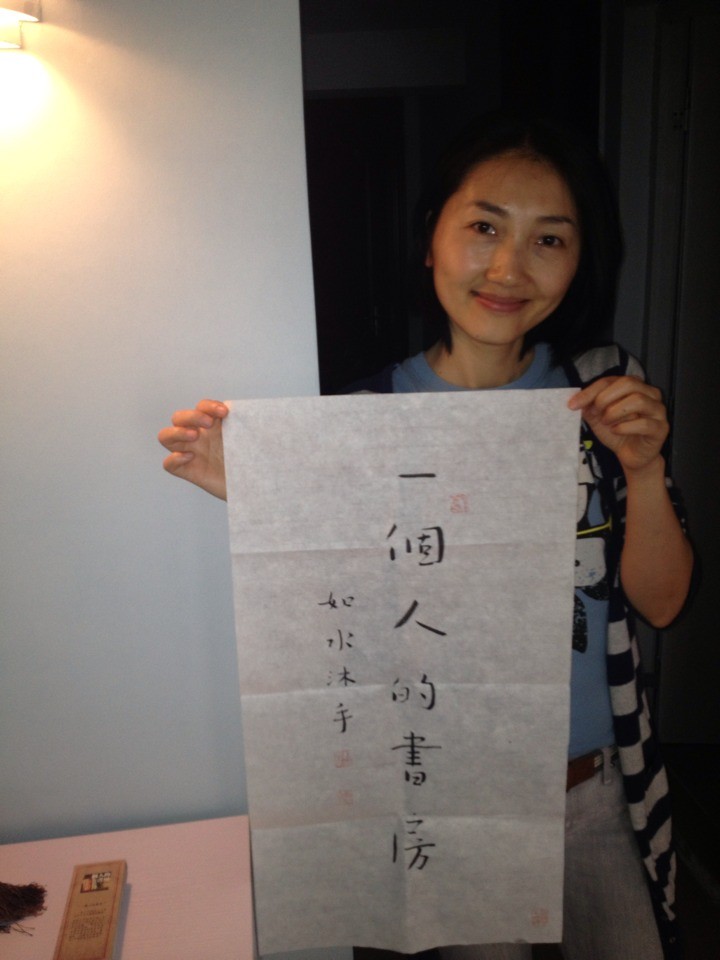 一個人的書房
如水沐手